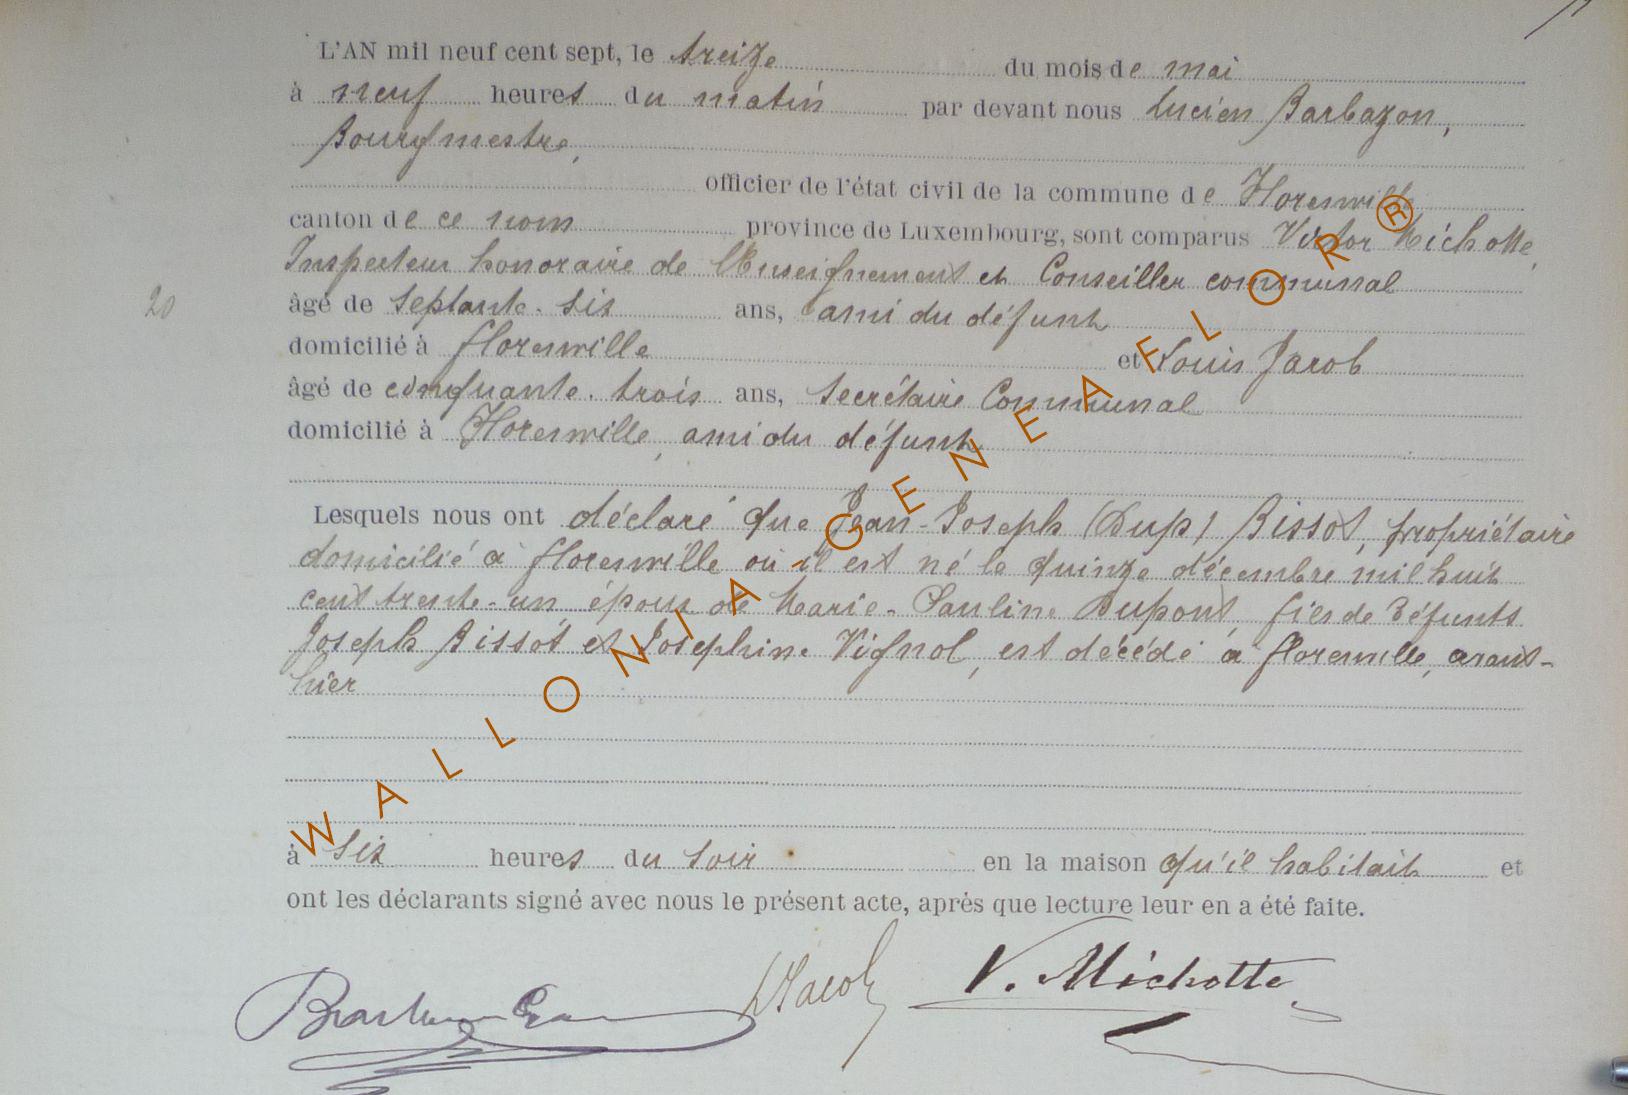 L'AN mil neuf cent sept, le treize du mois de mai
à neuf heures du matin par devant nous Lucien Barbazon,
Bourgmestre,
officier de l'état civil de la commune de Florenville
canton de ce nom province de Luxembourg, sont comparus Victor Michotte,
Inspecteur honoraire de l'Enseignement et Conseiller communal
20
âgé de septante-six ans, ami du défunt
domicilié à Florenville et Louis Jacob
âgé de cinquante-trois ans, Secrétaire Communal
domicilié à Florenville, ami du défunt
Lesquels nous ont déclaré que Jean-Joseph (Dup) Bissot, propriétaire
domicilié à Florenville où il est né le quinze décembre mil huit
cent trente-un, époux de Marie-Pauline Dupont, fils de défunts
Joseph Bissot et Joséphine Vignol, est décédé à Florenville, avant-
hier
à six heures du soir en la maison qu'il habitait et
ont les déclarants signé avec nous le présent acte, après que lecture leur en a été faite.
LJacob V. Michotte
WALLONIA GENEA FLOR®